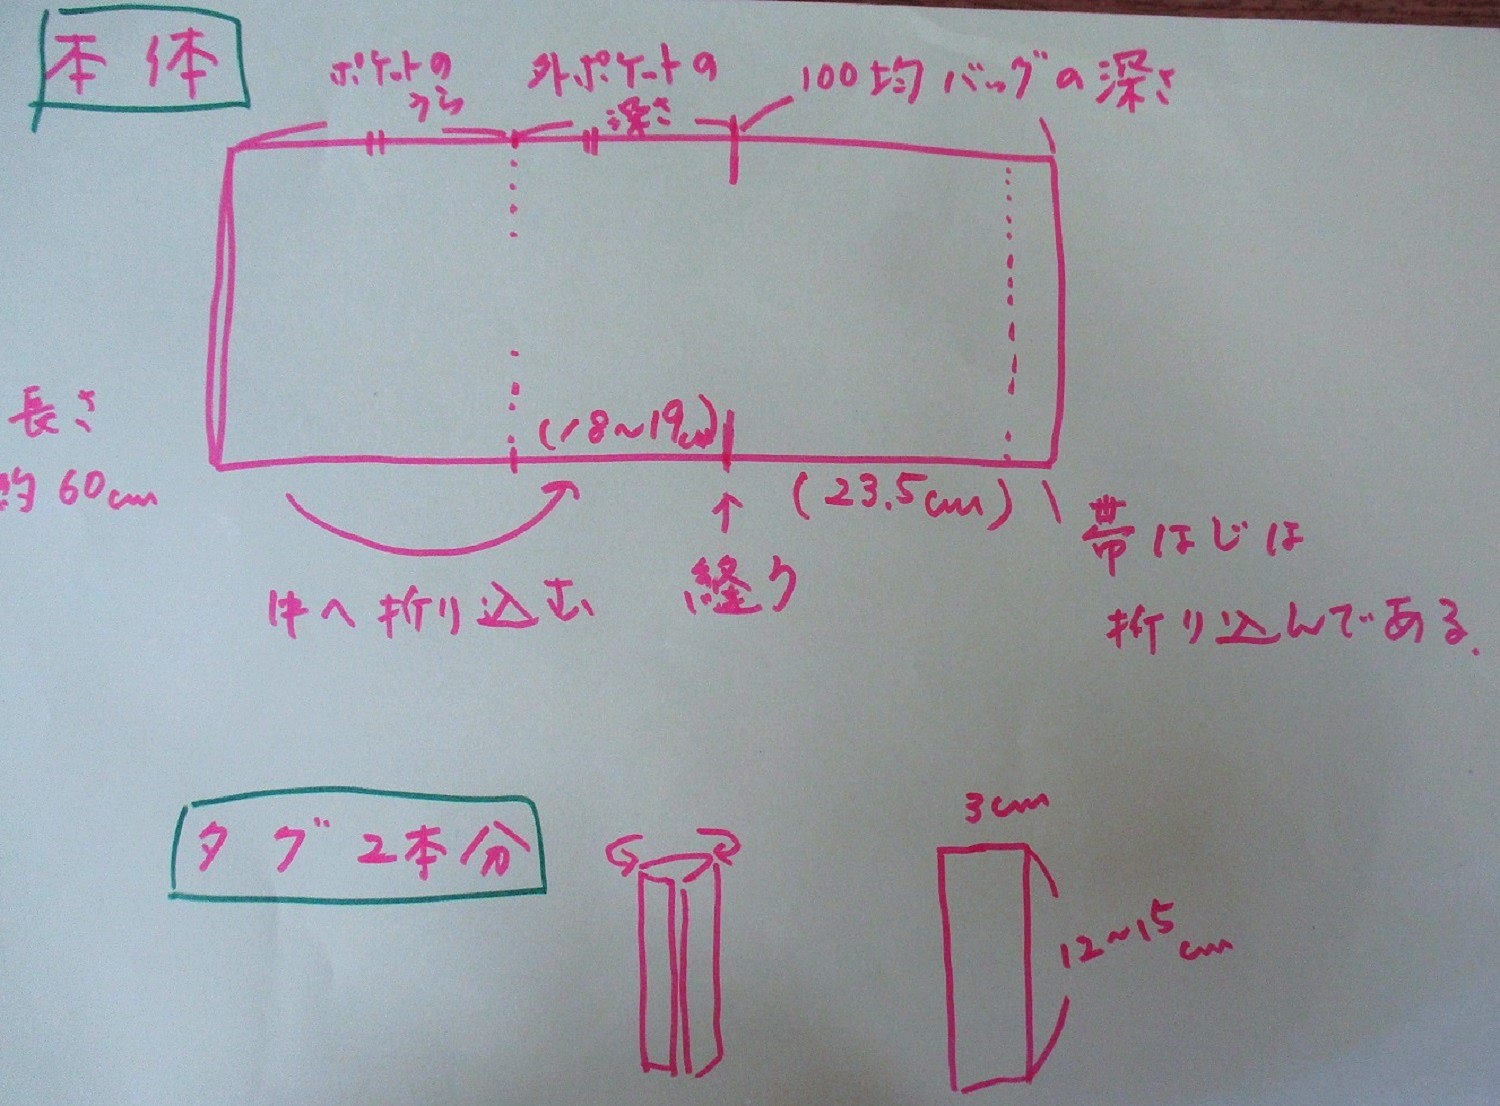 本体
ポケットの
うら
外ポケットの
深さ
100均バッグの深さ
長さ
約60cm
(18~19cm)
(23.5cm)
中へ折り込む
縫う
帯はじは
折り込んである.
タグ2本分
3cm
12~15
cm